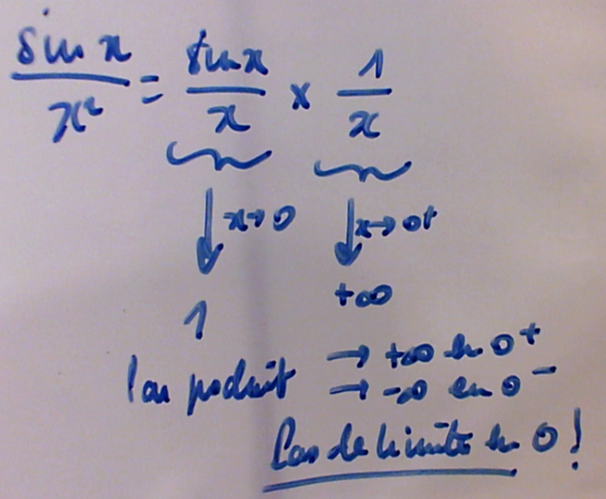 sin x / x² = sin x / x × 1 / x
x→0 x→0+
1 +∞
Par produit → +∞ en 0+
→ -∞ en 0-
Pas de limite en 0 !